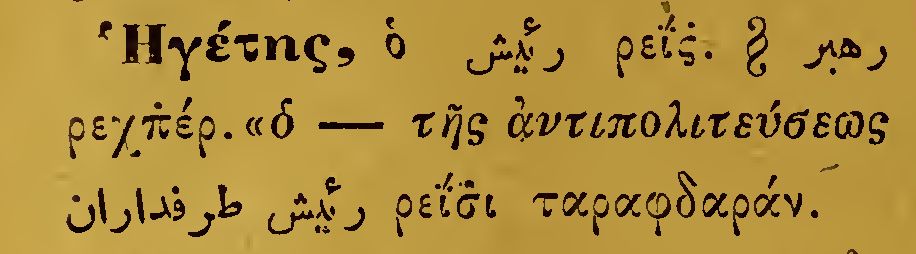 Ἡγέτης, ὁ رئيس ρεΐς̇. § رهبر
ρεχπ̇έρ. «ὁ — τῆς ἀντιπολιτεύσεως
رئيس طرفداران ρεΐσ̈ι ταραφδαράν.